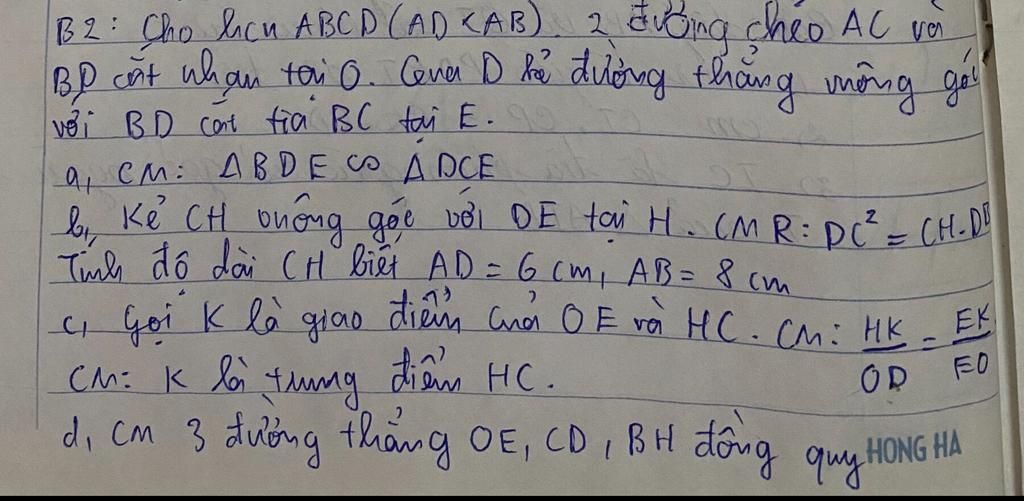 B2: Cho hcn ABCD (AD < AB). 2 đường chéo AC và
BD cắt nhau tại O. Qua D kẻ đường thẳng vuông góc
với BD cắt tia BC tại E.
a, CM: ΔBDE ∽ ΔDCE
b, Kẻ CH vuông góc với DE tại H. CMR: DC² = CH.DB
Tính độ dài CH biết AD = 6 cm, AB = 8 cm
c, Gọi K là giao điểm của OE và HC. CM: HK/OD = EK/EO
CM: K là trung điểm HC.
d, CM 3 đường thẳng OE, CD, BH đồng quy
HONG HA